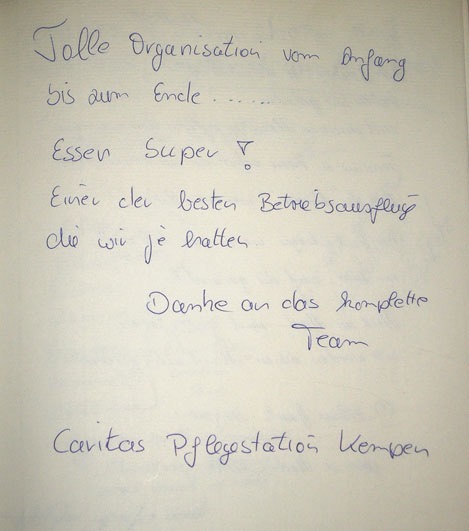 Tolle Organisation vom Anfang
bis zum Ende.......
Essen Super !
Einer der besten Betriebsausflug
die wir je hatten
Danke an das komplette
Team
Caritas Pflegestation Kempen